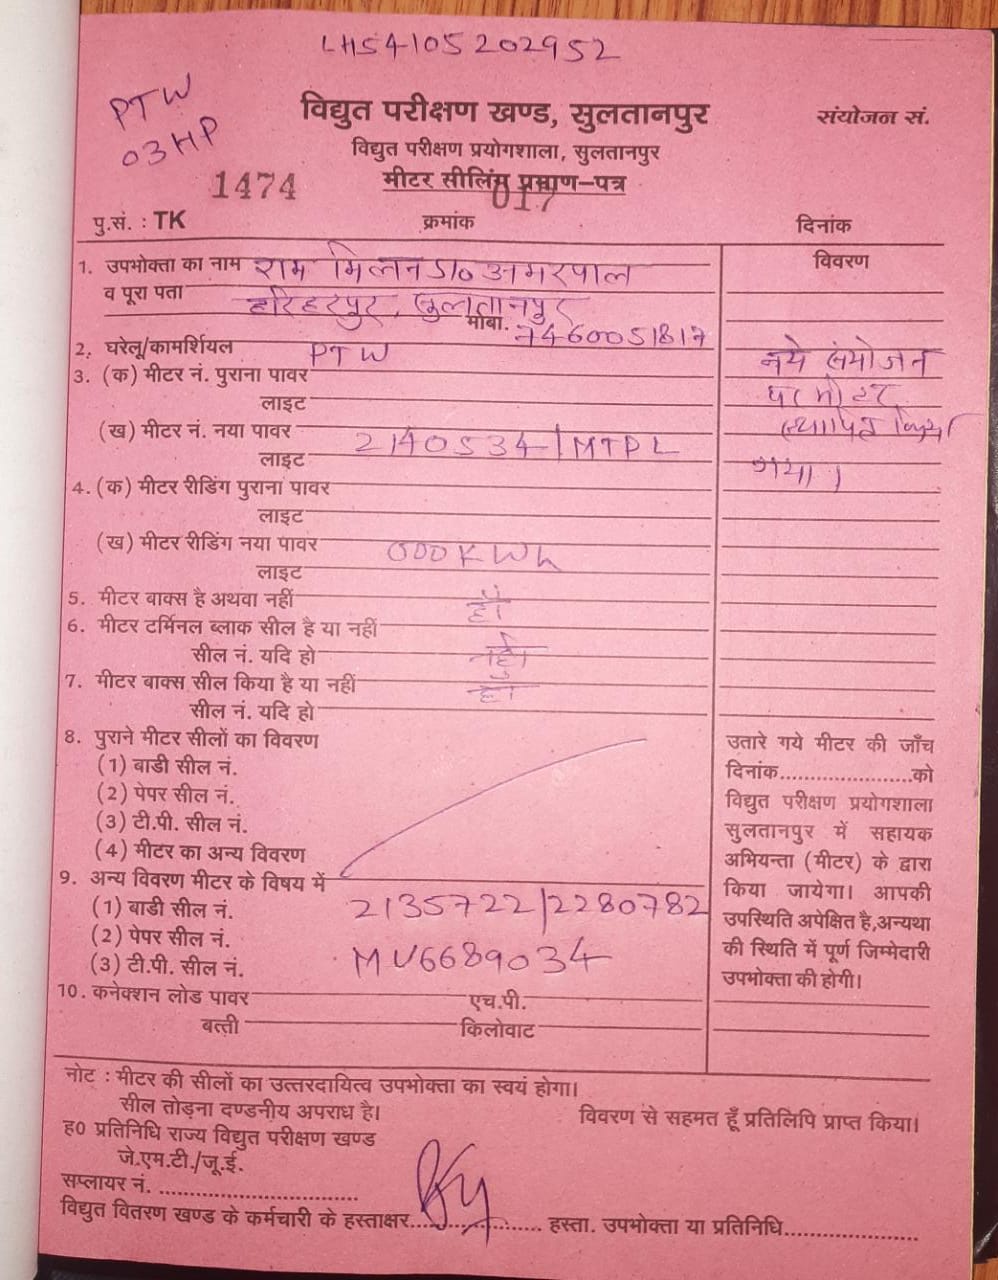 LH54105202952
PTW
03HP
विद्युत परीक्षण खण्ड, सुलतानपुर
संयोजन सं.
विद्युत परीक्षण प्रयोगशाला, सुलतानपुर
1474
मीटर सीलिंग प्रमाण-पत्र
017
पु.सं. : TK क्रमांक दिनांक
1. उपभोक्ता का नाम राम मिलन S/o अमरपाल
विवरण
व पूरा पता हरिहरपुर, सुलतानपुर
मोबा. 7460051817
2. घरेलू/कामर्शियल PTW
नये संयोजन
3. (क) मीटर नं. पुराना पावर
पर मीटर
लाइट
(ख) मीटर नं. नया पावर 2140534/MTPL
स्थापित किया
लाइट
गया।
4. (क) मीटर रीडिंग पुराना पावर
लाइट
(ख) मीटर रीडिंग नया पावर 000KWh
लाइट
5. मीटर बाक्स है अथवा नहीं हाँ
6. मीटर टर्मिनल ब्लाक सील है या नहीं
सील नं. यदि हो नहीं
7. मीटर बाक्स सील किया है या नहीं हाँ
सील नं. यदि हो
8. पुराने मीटर सीलों का विवरण
(1) बाडी सील नं.
(2) पेपर सील नं.
(3) टी.पी. सील नं.
(4) मीटर का अन्य विवरण
उतारे गये मीटर की जाँच
दिनांक.....................को
विद्युत परीक्षण प्रयोगशाला
सुलतानपुर में सहायक
अभियन्ता (मीटर) के द्वारा
किया जायेगा। आपकी
उपस्थिति अपेक्षित है,अन्यथा
की स्थिति में पूर्ण जिम्मेदारी
उपभोक्ता की होगी।
9. अन्य विवरण मीटर के विषय में
(1) बाडी सील नं. 2135722/2280782
(2) पेपर सील नं.
(3) टी.पी. सील नं. MU6689034
10. कनेक्शन लोड पावर एच.पी.
बत्ती किलोवाट
नोट : मीटर की सीलों का उत्तरदायित्व उपभोक्ता का स्वयं होगा।
सील तोड़ना दण्डनीय अपराध है।
विवरण से सहमत हूँ प्रतिलिपि प्राप्त किया।
ह0 प्रतिनिधि राज्य विद्युत परीक्षण खण्ड
जे.एम.टी./जू.ई.
सप्लायर नं. ..............................
विद्युत वितरण खण्ड के कर्मचारी के हस्ताक्षर.................... हस्ता. उपभोक्ता या प्रतिनिधि....................